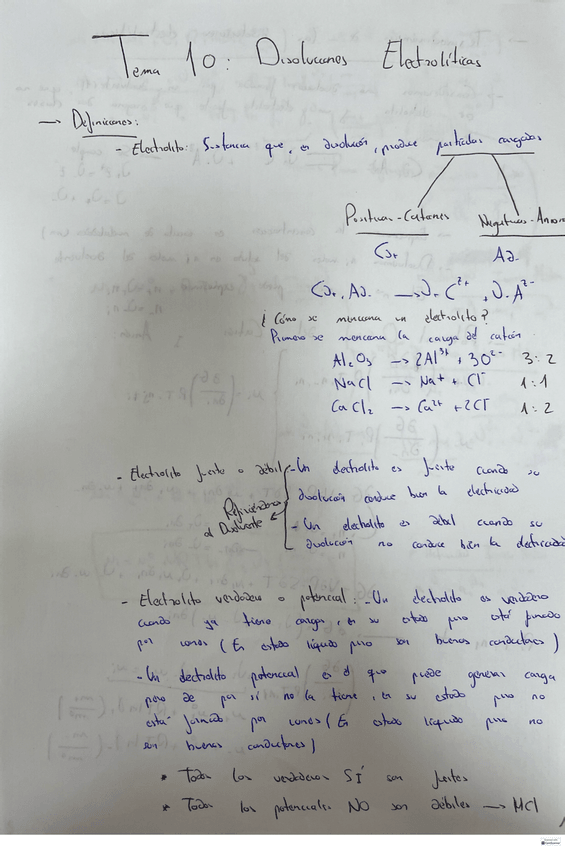 Tema 10: Disoluciones Electrolíticas
→ Definiciones:
- Electrolito: Sustancia que, en disolución, produce partículas cargadas
Positivas - Cationes Negativas - Anion
Cν+ Aν-
Cν+ Aν- → ν+ C^z+ + ν- A^z-
¿Cómo se menciona un electrolito?
Primero se menciona la carga del catión
Al2O3 → 2Al^3+ + 3O^2- 3:2
NaCl → Na+ + Cl- 1:1
CaCl2 → Ca^2+ + 2Cl- 1:2
- Electrolito fuerte o débil
Refiriéndonos
al Disolvente
- Un electrolito es fuerte cuando su
disolución conduce bien la electricidad
- Un electrolito es débil cuando su
disolución no conduce bien la electricidad
- Electrolito verdadero o potencial: - Un electrolito es verdadero
cuando ya tiene cargas, en su estado puro está formado
por iones (En estado líquido puro son buenos conductores)
- Un electrolito potencial es el que puede generar carga
pero de por sí no la tiene, en su estado puro no
está formado por iones (En estado líquido puro no
son buenos conductores)
* Todos los verdaderos SÍ son fuertes
* Todos los potenciales NO son débiles → HCl